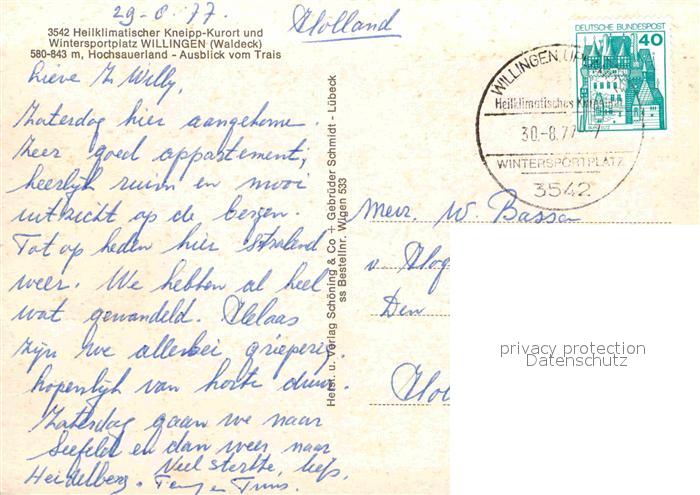 29-8-77.
Holland
3542 Heilklimatischer Kneipp-Kurort und
Wintersportplatz WILLINGEN (Waldeck)
580-843 m, Hochsauerland - Ausblick vom Trais
Lieve Willy,
Zaterdag hier aangekomen.
Zeer goed appartement,
heerlijk ruim en mooi
uitzicht op de bergen.
Tot op heden hier stralend
weer. We hebben al heel
wat gewandeld. Helaas
zijn we allebei grieperig,
hopenlijk van korte duur.
Zaterdag gaan we naar
Seefeld en dan weer naar
Heidelberg. Veel sterkte, liefs,
en Truus.
Herst. u. Verlag Schöning & Co + Gebrüder Schmidt - Lübeck
ss Bestellnr. Wigen 533
DEUTSCHE BUNDESPOST
40
WILLINGEN, UP
Heilklimatisches
30.-8.77
WINTERSPORTPLATZ
3542
W. Bassa
v
Den
Hol
privacy protection
Datenschutz